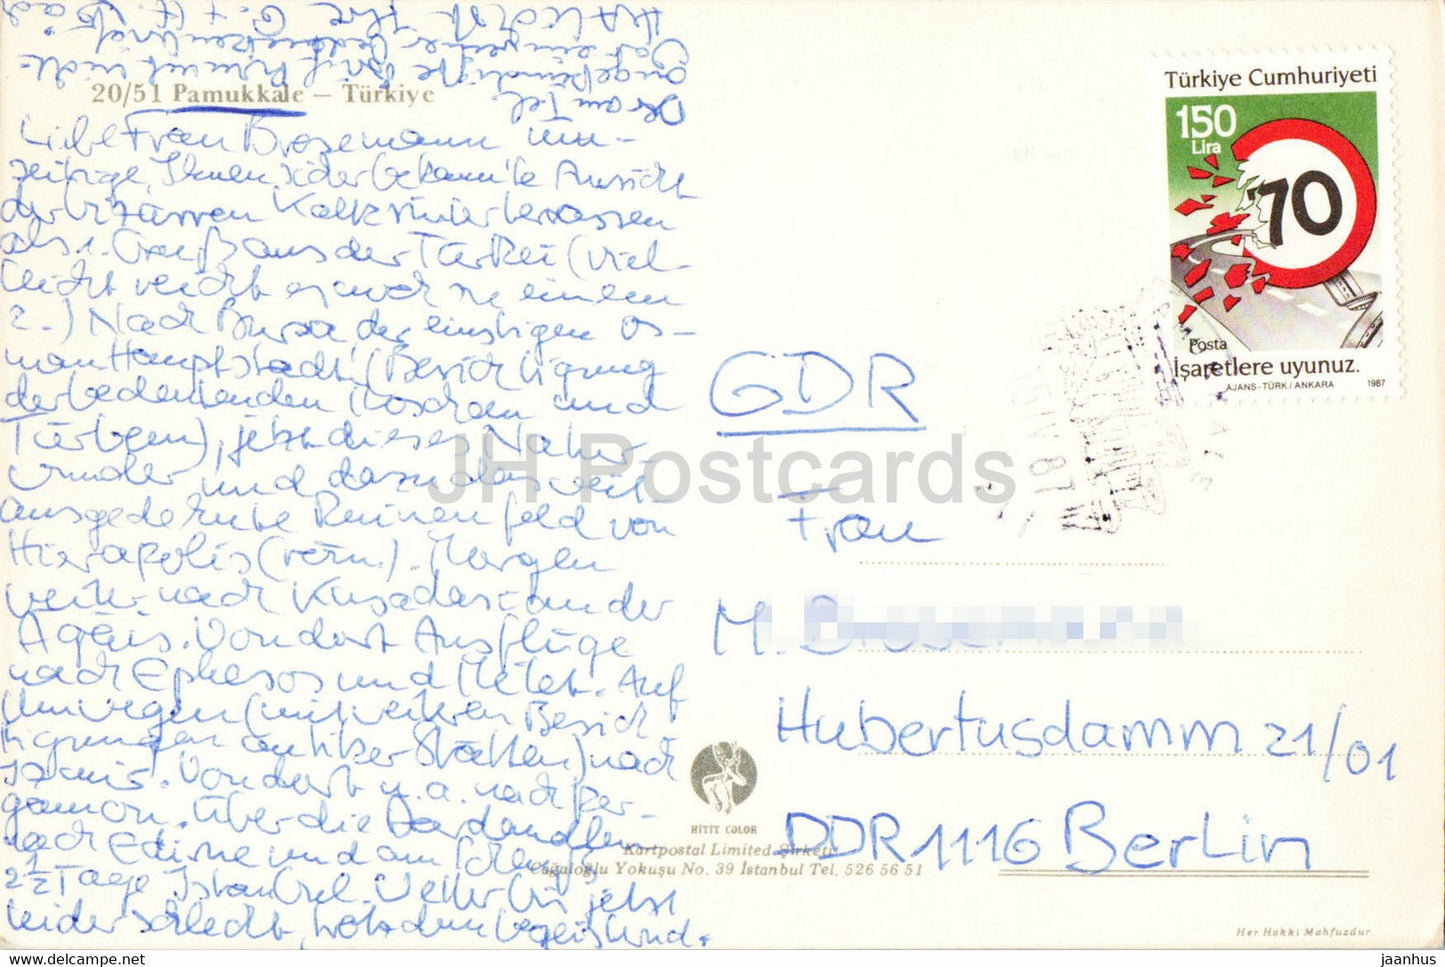 20/51 Pamukkale — Türkiye
Liebe Frau Brosemann
Ihnen der bekannte Ansicht
der bizarren Kalksinterterrassen
als 1. Gruß aus der Türkei (viel-
leicht wird es zu einem
2.) Nach Bursa der einstigen os-
man Hauptstadt (Besichtigung
der bedeutenden Moscheen und
Türben), jetzt dieses Natur-
wunder und dazu das weit
ausgedehnte Ruinenfeld von
Hierapolis (röm.). Morgen
weiter nach Kuşadası an der
Ägäis. Von dort Ausflüge
nach Ephesos und Milet. Auf
Umwegen (mit weiteren Besich
tigungen antiker Stätten) nach
Izmir. Von dort u.a. nach Per-
gamon. Über die Dardanellen
nach Edirne und am Schluß
2 1/2 Tage Istanbul. Wetter bis jetzt
leider schlecht, trotzdem begeisternd.
Der am Tel.
angekündigte Brief kommt
Türkiye Cumhuriyeti
150
Lira
70
Posta
İşaretlere uyunuz.
AJANS-TÜRK / ANKARA 1987
GDR
Frau
M.
Hubertusdamm 21/01
DDR 1116 Berlin
HİTİT COLOR
Kartpostal Limited Şirketi
Cağaloğlu Yokuşu No. 39 İstanbul Tel. 526 56 51
Her Hakkı Mahfuzdur
JH Postcards
jaanhus.com
jaanhus